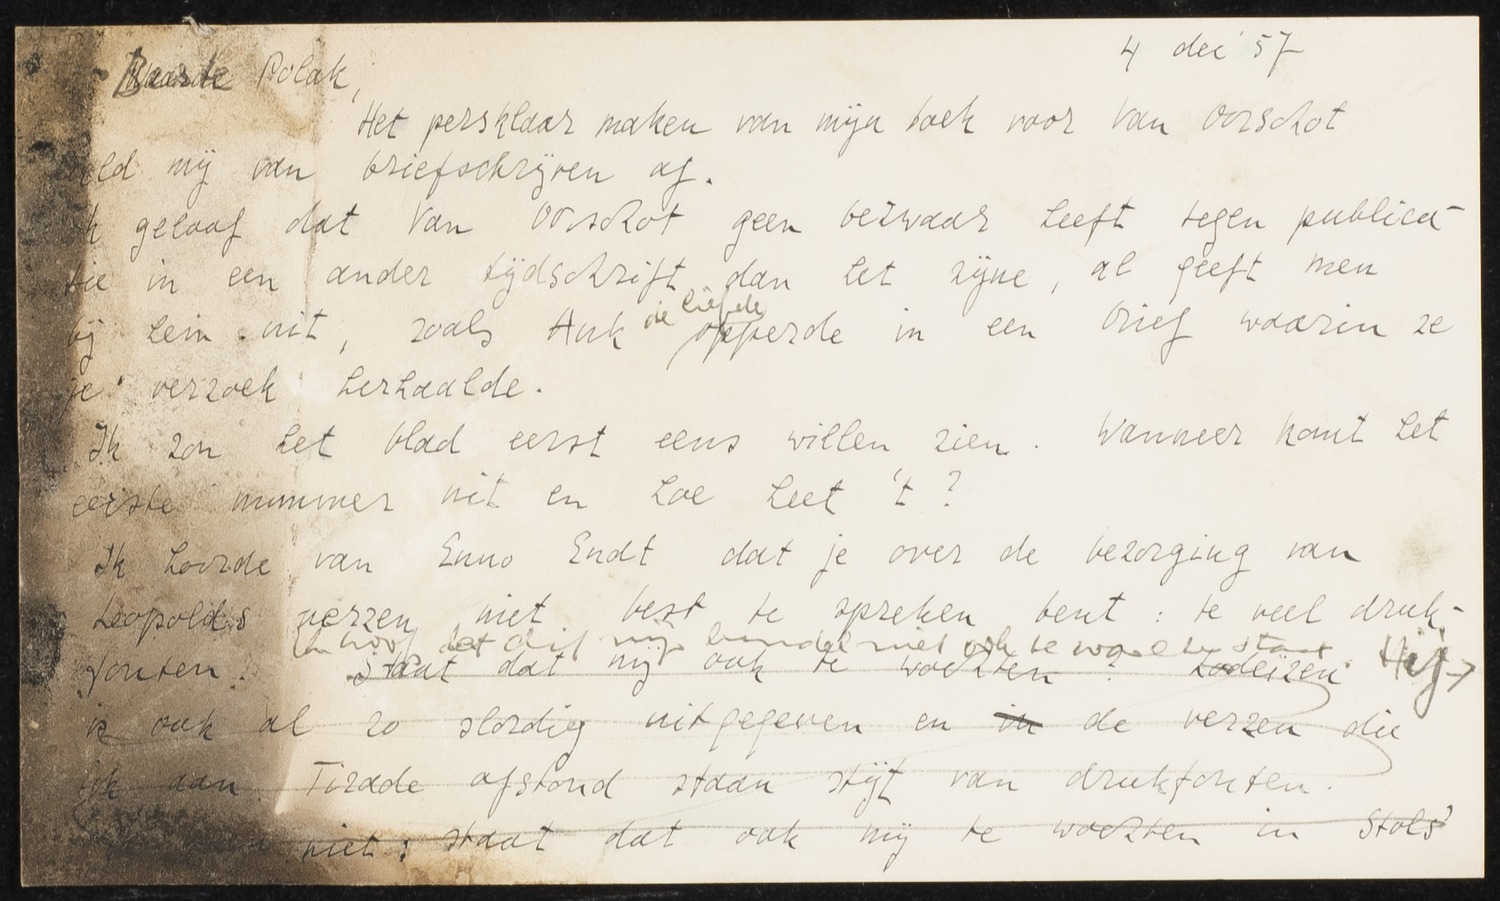 4 dec '57
Beaarde Polak,
Het persklaar maken van mijn boek voor Van Oorschot
mij van briefschrijven af.
Ik geloof dat Van Oorschot geen bezwaar heeft tegen publica-
tie in een ander tijdschrift dan het zijne, al geeft men
bij hem uit, zoals Ank opperde in een brief waarin ze
de liefde
je verzoek herhaalde.
Ik zou het blad eerst eens willen zien. Wanneer komt het
eerste nummer uit en hoe heet 't?
Ik hoorde van Enno Endt dat je over de bezorging van
Leopolds verzen niet best te spreken bent: te veel druk-
fouten! Staat dat mij ook te wachten? Lodeizen Hij →
dat mijn bundel niet ook te wachten staat.
is ook al zo slordig uitgegeven en in de verzen die
ik aan Tirade afstond staan stijf van drukfouten.
niet: staat dat ook mij te wachten in Stols'